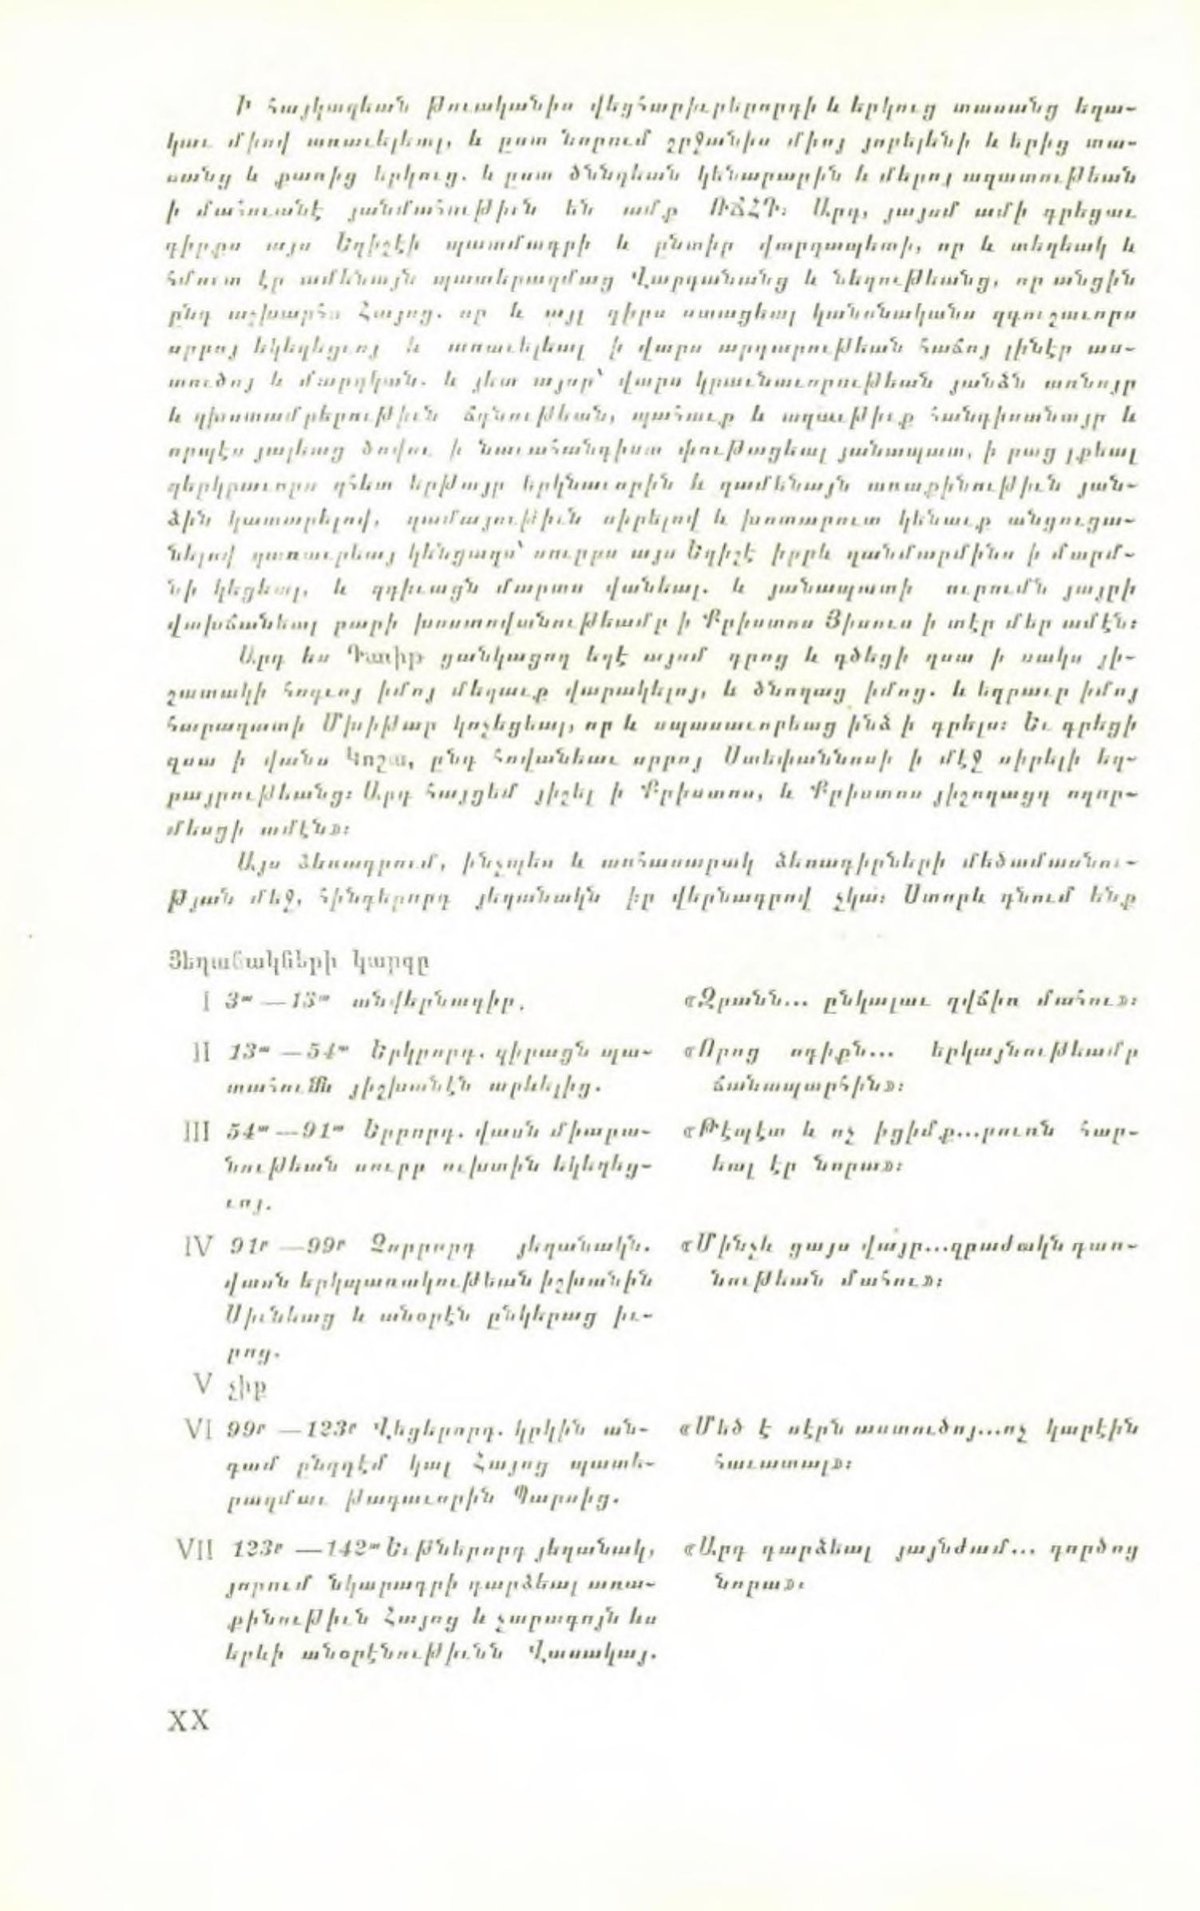 Ի հայկազեան թուականիս վեցհարիւրերորդի և երկուց տասանց եղա-
կաւ միով առաւելեալ, և ըստ նորում շրջանիս միոյ յոբելենի և երից տա-
սանց և քառից երկուց. և ըստ ծննդեան կենարարին և մերոյ ազատութեան
ի մահուանէ յանմահութիւն են ամք ՌՃՀԴ։ Արդ, յայսմ ամի գրեցաւ
գիրքս այս Եղիշէի պատմագրի և ընտիր վարդապետի, որ և տեղեակ և
հմուտ էր ամենայն պատերազմաց Վարդանանց և նեղութեանց, որ անցին
ընդ աշխարհս Հայոց. որ և այլ գիրս ստացեալ կանոնականս զգուշաւորս
սրբոյ եկեղեցւոյ և առաւելեալ ի վարս արդարութեան հաճոյ լինէր աս-
տուծոյ և մարդկան. և յետ այսր՝ վարս կրաւնաւորութեան յանձն առնոյր
և զխստամբերութիւն ճգնութեան, պահաւք և աղաւթիւք հանգիստանայր և
որպէս յալեաց ծովու ի նաւահանգիստ փութացեալ յանապատ, ի բաց լքեալ
զերկրաւորս զհետ երթայր երկնաւորին և զամենայն առաքինութիւն յան-
ձին կատարելով, զամայութիւն սիրելով և խոտաբուտ կենաւք անցուցա-
նելով զառաւրեայ կենցաղս՝ սուրբս այս Եղիշէ իբրև զանմարմինս ի մարմ-
նի կեցեալ, և զդիւացն մարտս վանեալ. և յանապատի ուրումն յայրի
վախճանեալ բարի խոստովանութեամբ ի Քրիստոս Յիսուս ի տէր մեր ամէն։
Արդ ես Դաւիթ ցանկացող եղէ այսմ գրոց և գծեցի զսա ի սակս յի-
շատակի հոգւոյ իմոյ մեղաւք վարակելոյ, և ծնողաց իմոց. և եղբաւր իմոյ
հարազատի Մխիթար կոչեցեալ, որ և սպասաւորեաց ինձ ի գրելս։ Եւ գրեցի
զսա ի վանս Կոշա, ընդ հովանեաւ սրբոյ Ստեփաննոսի ի մէջ սիրելի եղ-
բայրութեանց։ Արդ հայցեմ յիշել ի Քրիստոս, և Քրիստոս յիշողացդ ողոր-
մեսցի ամէն»։
Այս ձեռագրում, ինչպես և առհասարակ ձեռագիրների մեծամասնու-
թյան մեջ, հինգերորդ յեղանակն իր վերնագրով չկա։ Ստորև դնում ենք
Յեղանակների կարգը
I 3ա — 13ա անվերնագիր.
«Զբանն... ընկալաւ զվճիռ մահու»։
II 13ա — 54ա Երկրորդ. զիրացն պա-
տահումն յիշխանէն արևելից.
«Որոց ոգիքն... երկայնութեամբ
ճանապարհին»։
III 54ա — 91ա Երրորդ. վասն միաբա-
նութեան սուրբ ուխտին եկեղեց-
ւոյ.
«Թէպէտ և ոչ իցիմք...բուռն հար-
եալ էր նորա»։
IV 91բ — 99բ Չորրորդ յեղանակն.
վասն երկպառակութեան իշխանին
Սիւնեաց և անօրէն ընկերաց իւ-
րոց.
«Մինչև ցայս վայր...զբաժակն դառ-
նութեան մահու»։
V չիք
VI 99բ — 123բ Վեցերորդ. կրկին ան-
գամ ընդդէմ կալ Հայոց պատե-
րազմաւ թագաւորին Պարսից.
«Մեծ է սէրն աստուծոյ...ոչ կարէին
հաւատալ»։
VII 123բ — 142ա Եւթներորդ յեղանակ,
յորում նկարագրի դարձեալ առա-
քինութիւն Հայոց և չարագոյն ևս
երևի անօրէնութիւնն Վասակայ.
«Արդ դարձեալ յայնժամ... գործոց
նորա»։
XX